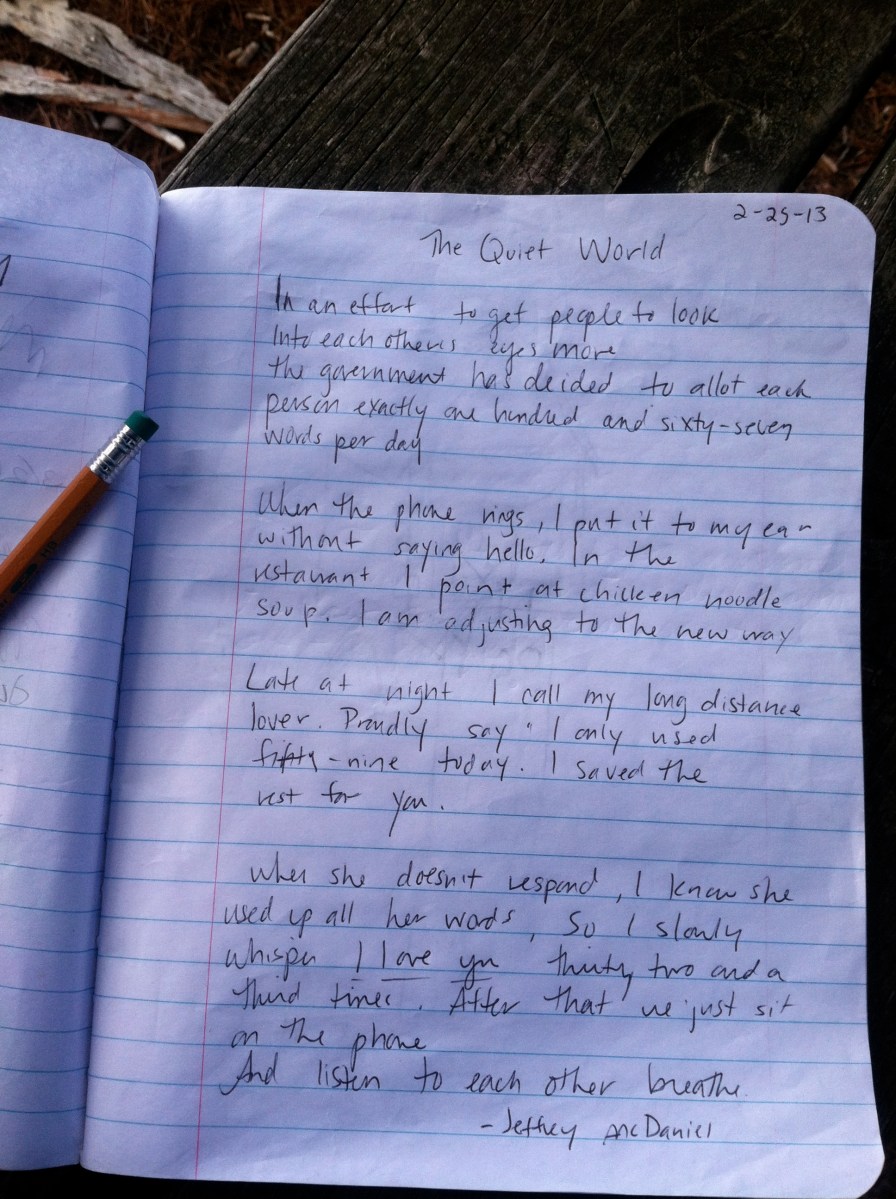 2-25-13
The Quiet World
In an effort to get people to look
Into each other's eyes more
the government has decided to allot each
person exactly one hundred and sixty-seven
words per day
When the phone rings, I put it to my ear
without saying hello. In the
restaurant I point at chicken noodle
soup. I am adjusting to the new way
Late at night I call my long distance
lover. Proudly say "I only used
fifty-nine today. I saved the
rest for you.
When she doesn't respond, I know she
used up all her words, So I slowly
whisper I love you thirty two and a
third times. After that we just sit
on the phone
And listen to each other breathe.
-Jeffrey McDaniel